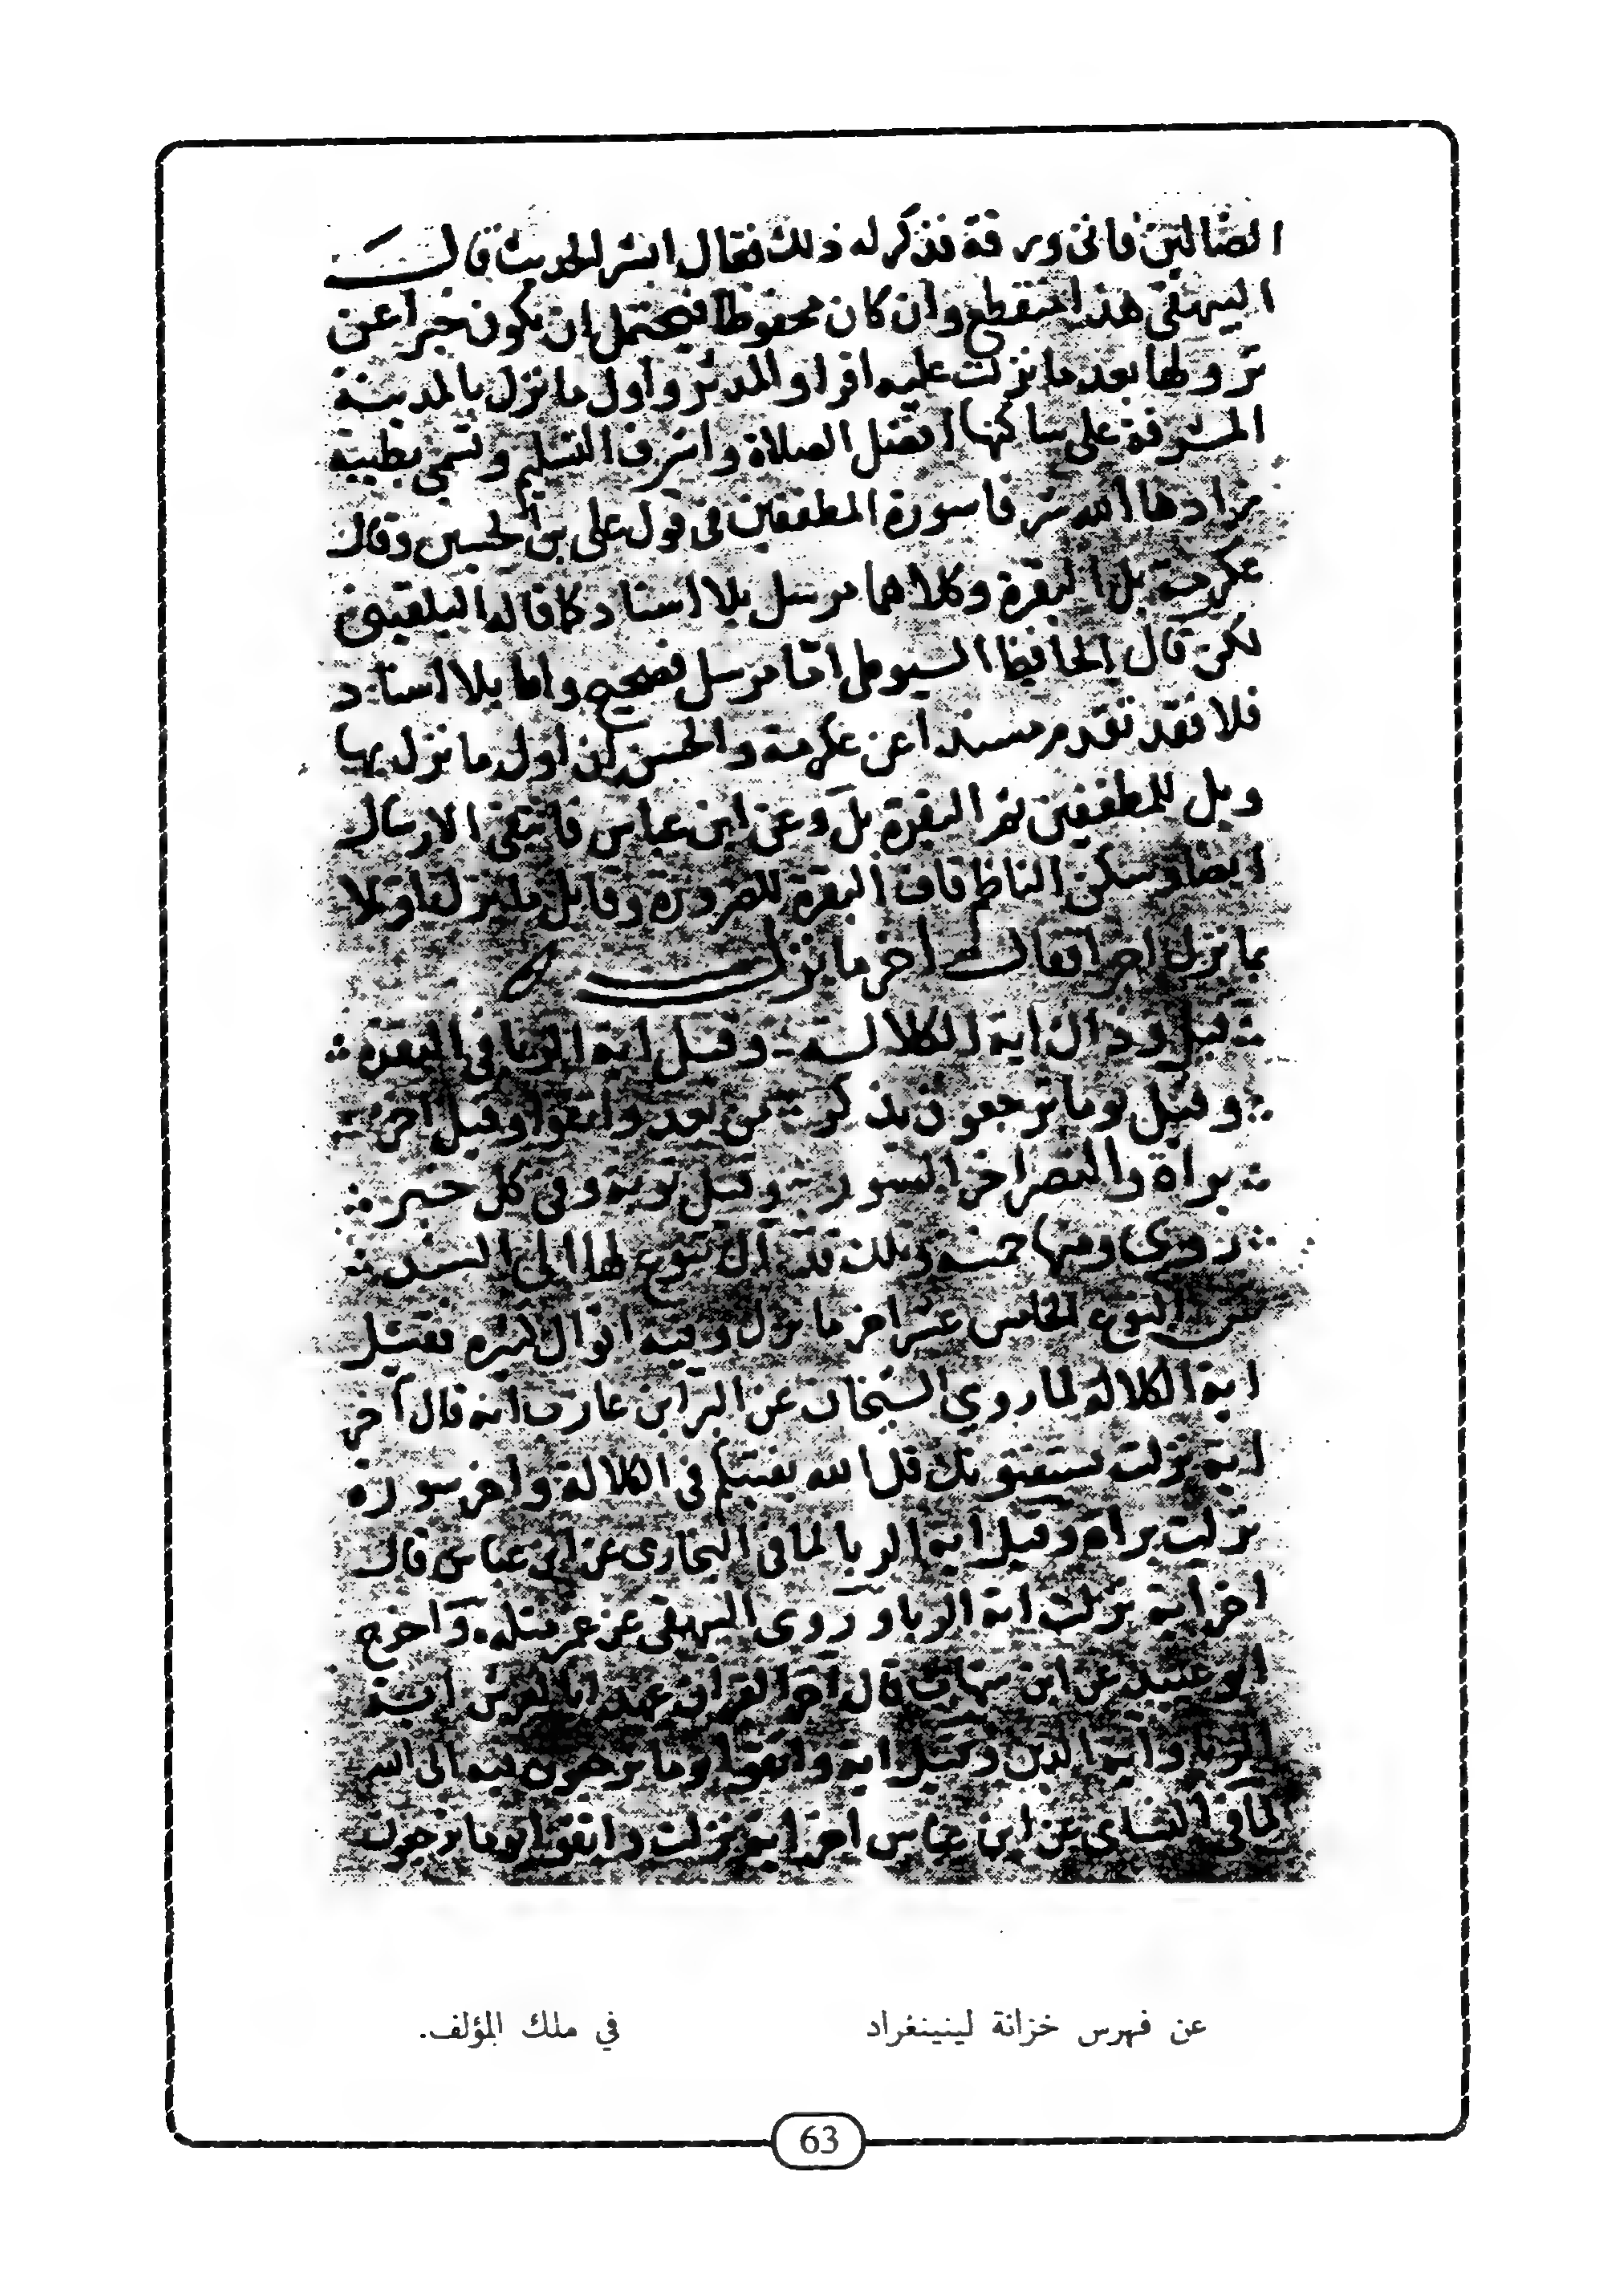 الضالين فاتى ورقة فذكر له ذلك فقال ابشر الحديث قال
البيهقي هذا منقطع وان كان محفوظا فيحتمل ان يكون خبرا عن
نزولها بعد ما نزلت عليه اقرا والمدثر واول ما نزل بالمدينة
المشرفة على ساكنها افضل الصلاة واشرف التسليم وتسمى بطيبة
زادها الله شرفا سورة المطففين في قول على بن الحسين وقال
عكرمة بل البقرة وكلاهما مرسل بلا اسناد كما قاله البلقينى
لكن قال الحافظ السيوطى اما مرسل فصحيح واما بلا اسناد
فلا فقد تقدم مسندا عن عكرمة والحسن ان اول ما نزل بها
ويل للمطففين ثم البقرة بل وعن ابن عباس فانتفى الارسال
ايضا وسكن الناظم قاف البقرة للضرورة وقابل ما نزل اولا
بما نزل اخرا فقال اخر ما نزل
قيل وذاك اية الكلالة وقيل اية الربا في البقرة
وقيل يوما ترجعون تذكر من بعد واتقوا وقيل اخر
براة والنصر اخر السور وقيل توبة وفي كل خبر
روى ومنها خمسة وتلك قد ال تنوع لها الى السند
النوع الخامس عشر اخر ما نزل وفيه اقوال كثيرة فقيل
اية الكلالة لما روي الشيخان عن البرا بن عازب انه قال آخر
اية نزلت يستفتونك قل الله يفتيكم في الكلالة واخر سورة
نزلت براة وقيل اية الربا لما في البخارى عن ابن عباس قال
اخر اية نزلت اية الربا وروى البيهقى عن عمر مثله واخرج
ابو عبيد عن ابن شهاب قال آخر القران عهدا بالعرش اية
الربا واية الدين وقيل اية واتقوا يوما ترجعون فيه الى الله
لما في النساى عن ابن عباس اخر اية نزلت واتقوا يوما ترجعون
عن فهرس خزانة لينينغراد
في ملك المؤلف.
63